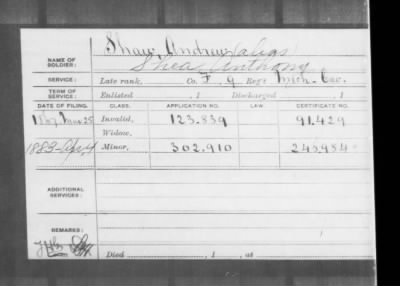 Shaw, Andrew (alias)
NAME OF SOLDIER: Shea, Anthony
SERVICE: Late rank, Co. F, 9 Reg't Mich. Cav.
TERM OF SERVICE: Enlisted , 1 Discharged , 1
DATE OF FILING. CLASS. APPLICATION NO. LAW. CERTIFICATE NO.
1867 Mar 25 Invalid, 123.839 91.429
Widow,
1883-Apr 4 Minor, 302.910 245984
ADDITIONAL SERVICES:
REMARKS:
Died , 1 , at